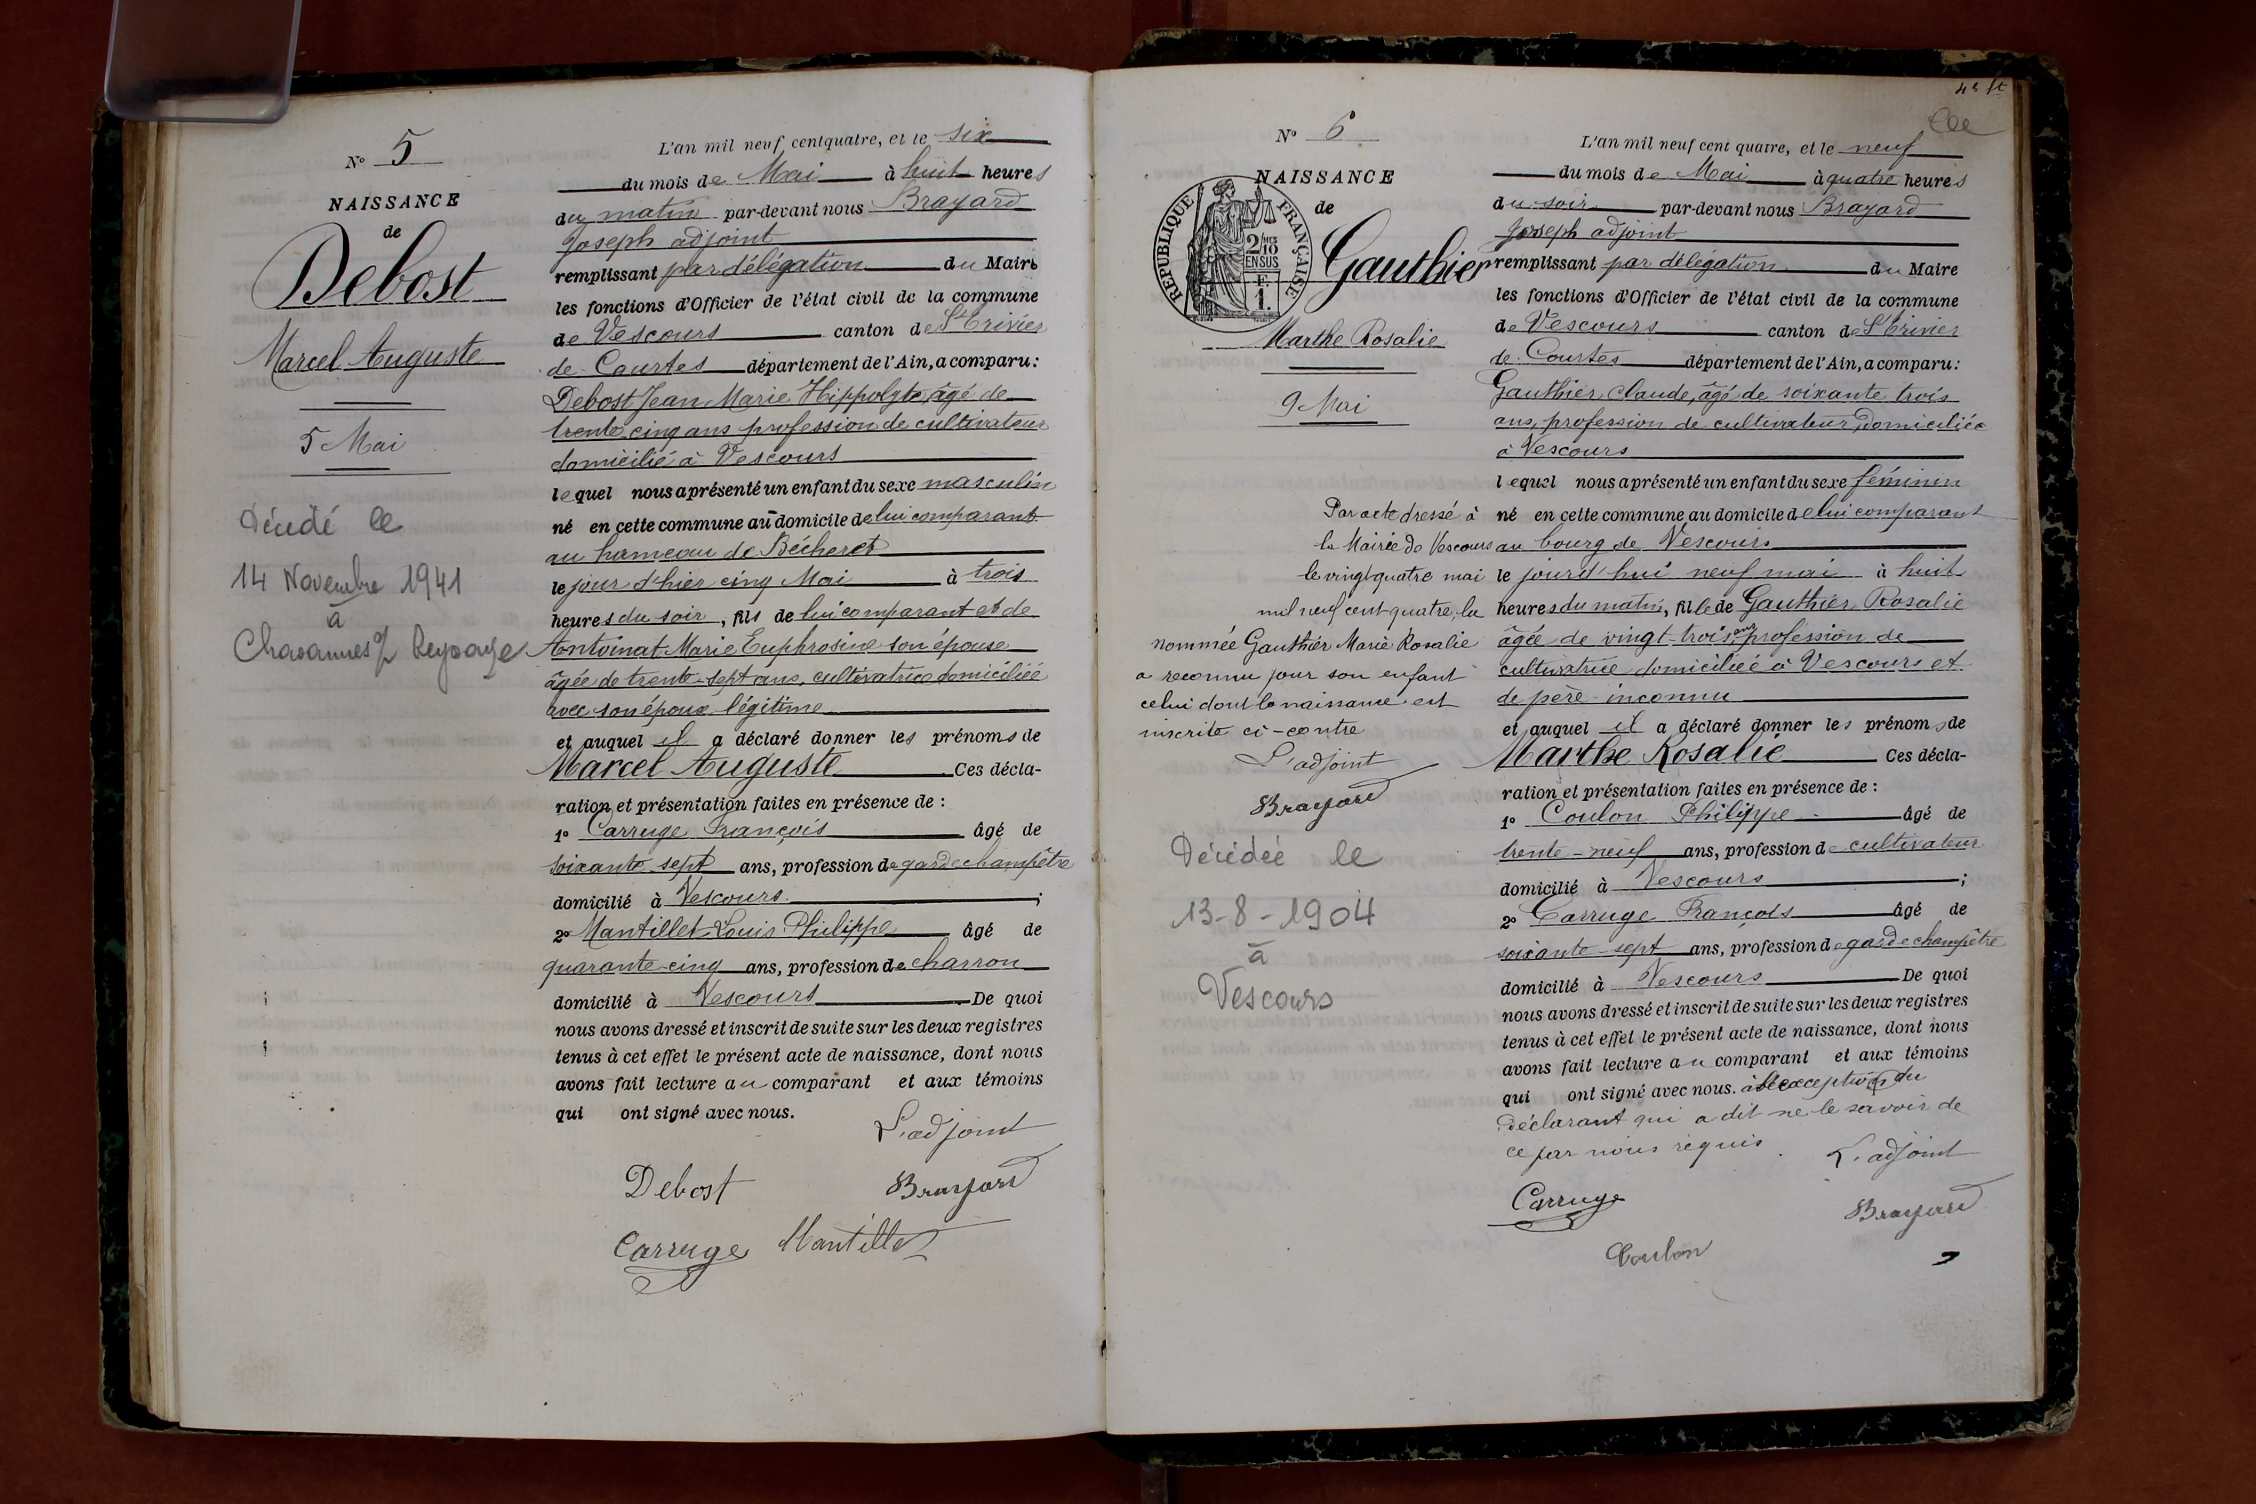 N° 5
NAISSANCE
de
Debost
Marcel Auguste
5 Mai
Décédé le
14 Novembre 1941
à
Chavannes s/ Reyssouze
L'an mil neuf cent quatre, et le six
du mois de Mai à huit heures
du matin par-devant nous Brayard
Joseph adjoint
remplissant par délégation du Maire
les fonctions d'Officier de l'état civil de la commune
de Vescours canton de St Trivier
de Courtes département de l'Ain, a comparu :
Debost Jean Marie Hippolyte, âgé de
trente cinq ans profession de cultivateur
domicilié à Vescours
lequel nous a présenté un enfant du sexe masculin
né en cette commune au domicile de lui comparant
au hameau de Bécheret
le jour d'hier cinq Mai à trois
heures du soir, fils de lui comparant et de
Antoinat Marie Euphrosine son épouse
âgée de trente-sept ans, cultivatrice domiciliée
avec son époux légitime
et auquel il a déclaré donner les prénoms de
Marcel Auguste Ces décla-
ration et présentation faites en présence de :
1° Carruge François âgé de
soixante sept ans, profession de garde champêtre
domicilié à Vescours ;
2° Mantillet Louis Philippe âgé de
quarante-cinq ans, profession de charron
domicilié à Vescours De quoi
nous avons dressé et inscrit de suite sur les deux registres
tenus à cet effet le présent acte de naissance, dont nous
avons fait lecture au comparant et aux témoins
qui ont signé avec nous.
L'adjoint
Debost Brayard
Carruge Mantillet
N° 6
NAISSANCE
de
RÉPUBLIQUE FRANÇAISE
2/10
EN SUS
F.
1.
Gauthier
Marthe Rosalie
9 Mai
Par acte dressé à
la Mairie de Vescours
le vingt quatre mai
mil neuf cent quatre, la
nommée Gauthier Marie Rosalie
a reconnu pour son enfant
celui dont la naissance est
inscrite ci-contre
L'adjoint
Brayard
Décédée le
13-8-1904
à
Vescours
L'an mil neuf cent quatre, et le neuf
du mois de Mai à quatre heures
du soir par-devant nous Brayard
Joseph adjoint
remplissant par délégation du Maire
les fonctions d'Officier de l'état civil de la commune
de Vescours canton de St Trivier
de Courtes département de l'Ain, a comparu :
Gauthier Claude, âgé de soixante trois
ans, profession de cultivateur, domiciliée
à Vescours
lequel nous a présenté un enfant du sexe féminin
né en cette commune au domicile de lui comparant
au bourg de Vescours
le jourd'hui neuf mai à huit
heures du matin, fille de Gauthier Rosalie
âgée de vingt-trois ans profession de
cultivatrice domiciliée à Vescours et
de père inconnu
et auquel il a déclaré donner les prénoms de
Marthe Rosalie Ces décla-
ration et présentation faites en présence de :
1° Coulon Philippe âgé de
trente-neuf ans, profession de cultivateur
domicilié à Vescours ;
2° Carruge François âgé de
soixante sept ans, profession de garde champêtre
domicilié à Vescours De quoi
nous avons dressé et inscrit de suite sur les deux registres
tenus à cet effet le présent acte de naissance, dont nous
avons fait lecture au comparant et aux témoins
qui ont signé avec nous. à l'exception du
déclarant qui a dit ne le savoir de
ce par nous requis. L'adjoint
Carruge Brayard
Coulon